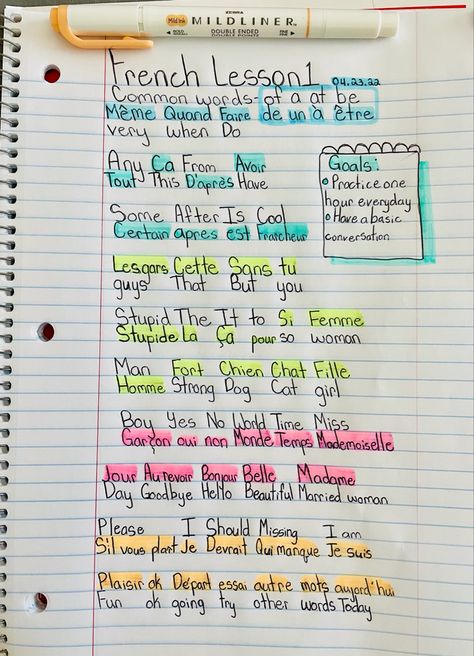 ZEBRA Mild ink MILDLINER™ DOUBLE ENDED
French Lesson 1 04.23.22
Common words- of a at be
Même Quand Faire de un à être
very when Do
Any Ça From Avoir
Tout This D'après Have
Some After Is Cool
Certain apres est Fraicheur
Lesgars Cette Sans tu
guys That But you
Stupid The It to Si Femme
Stupide la Ça pour so woman
Man Fort Chien Chat Fille
Homme Strong Dog Cat girl
Boy Yes No World Time Miss
Garçon oui non Monde Temps Mademoiselle
Jour Aurevoir Bonjour Belle Madame
Day Goodbye Hello Beautiful Married woman
Please I Should Missing I am
Sil vous plart Je Devrait Qui manque Je suis
Plaisir ok Départ essai autre mots aujord'hui
Fun ok going try other words Today
Goals:
Practice one
hour everyday
Have a basic
conversation